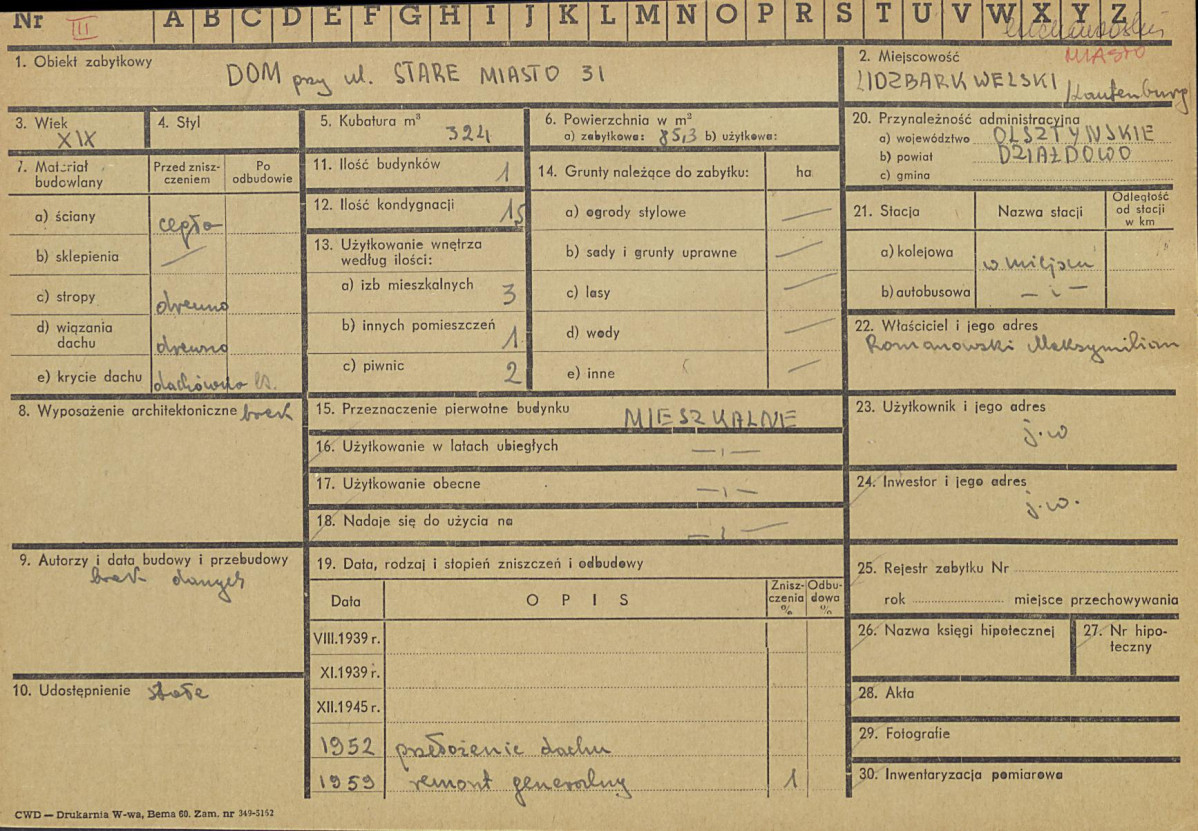 Nr III A B C D E F G H I J K L M N O P R S T U V W X Y Z
MIASTO
1. Obiekt zabytkowy
DOM przy ul. STARE MIASTO 31
2. Miejscowość
LIDZBARK WELSKI /Lautenburg
3. Wiek
XIX
4. Styl
5. Kubatura m³
324
6. Powierzchnia w m²
a) zabytkowa: 85,3 b) użytkowa:
20. Przynależność administracyjna
a) województwo OLSZTYNSKIE
b) powiat DZIAŁDOWO
c) gmina
7. Materiał budowlany
Przed zniszczeniem
Po odbudowie
a) ściany cegła
b) sklepienia —
c) stropy drewno
d) wiązania dachu drewno
e) krycie dachu dachówka
11. Ilość budynków 1
12. Ilość kondygnacji 1,5
13. Użytkowanie wnętrza według ilości:
a) izb mieszkalnych 3
b) innych pomieszczeń 1
c) piwnic 2
14. Grunty należące do zabytku: ha
a) ogrody stylowe —
b) sady i grunty uprawne —
c) lasy —
d) wody —
e) inne —
21. Stacja
Nazwa stacji
Odległość od stacji w km
a) kolejowa w miejscu
b) autobusowa — „ —
22. Właściciel i jego adres
Romanowski Maksymilian
8. Wyposażenie architektoniczne brak
15. Przeznaczenie pierwotne budynku MIESZKALNE
16. Użytkowanie w latach ubiegłych — „ —
17. Użytkowanie obecne — „ —
18. Nadaje się do użycia na — „ —
23. Użytkownik i jego adres
j.w
24. Inwestor i jego adres
j.w.
9. Autorzy i data budowy i przebudowy
brak danych
10. Udostępnienie stałe
19. Data, rodzaj i stopień zniszczeń i odbudowy
Data
OPIS
Zniszczenia %
Odbudowa %
VIII.1939 r.
XI.1939 r.
XII.1945 r.
1952 przełożenie dachu
1959 remont generalny 1
25. Rejestr zabytku Nr
rok miejsce przechowywania
26. Nazwa księgi hipotecznej
27. Nr hipoteczny
28. Akta
29. Fotografie
30. Inwentaryzacja pomiarowa
CWD — Drukarnia W-wa, Bema 60. Zam. nr 349-5152